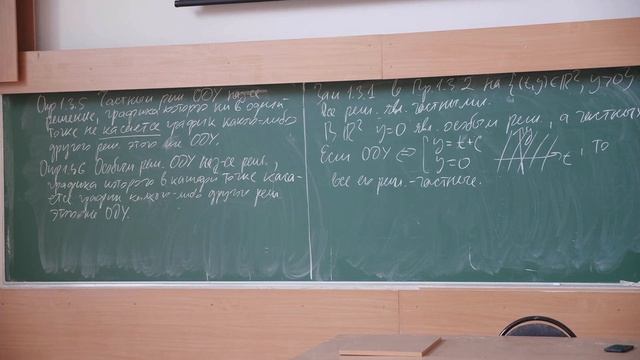 Опр 1.3.5 Частным реш. ОДУ наз-ся
решение, графика которого ни в одной
точке не касается график какого-либо
другого реш. этого же ОДУ.
Опр 1.3.6 Особым реш. ОДУ наз-ся реш.,
графика которого в каждой точке каса-
ется график какого-либо другого реш.
этого же ОДУ.
Зам 1.3.1 В Пр. 1.3.2 на {(t,y)∈ℝ², y>0}
все реш. явл. частными.
В ℝ² y=0 явл. особым реш., а частных
Если ОДУ ⇔ [ y=t+C
y=0
t , то
все его реш. - частные.